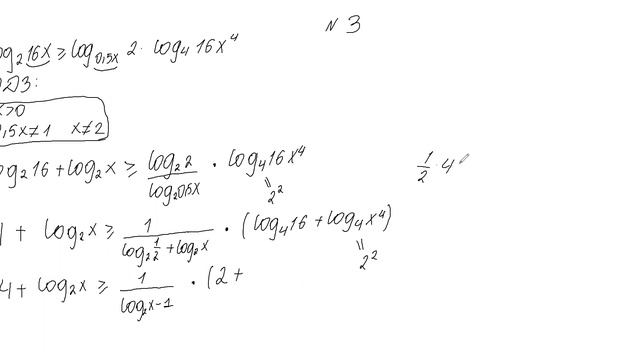 N 3
og₂16x ≥ log₀,₅ₓ 2 · log₄ 16x⁴
ОДЗ:
x>0
0,5x≠1 x≠2
log₂16 + log₂x ≥ log₂2 / log₂0,5x · log₄16x⁴
= 2²
1/2 · 4
4 + log₂x ≥ 1 / (log₂ 1/2 + log₂x) · (log₄16 + log₄x⁴)
= 2²
4 + log₂x ≥ 1 / (log₂x − 1) · (2 +